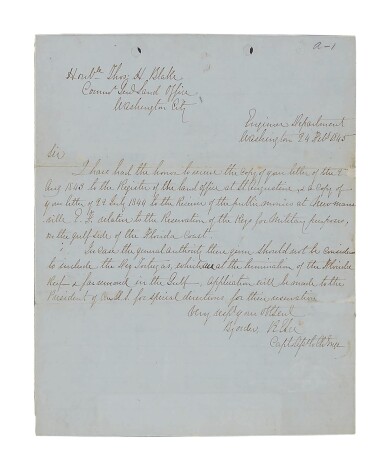 a-1
Honble Thos H. Blake
Commr Genl Land Office
Washington City
Engineer Department
Washington 24 Feb 1845
Sir
I have had the honor to receive the copy of your letter of the 2
Aug 1843 to the Register of the Land office at St Augustine, & a copy of
your letter of 22 July 1844 to the Receiver of the public monies at Newnans
ville E. F. relative to the Reservation of the Keys for Military purposes,
on the gulf side of the Florida coast.
In case the general authority then given should not be considered
to include the Dry Tortugas, which are at the termination of the Florida
Reef & far onward in the Gulf application will be made to the
President of the U.S. for special directions for their reservation
Very respy your Ob Servt
By order
Capt